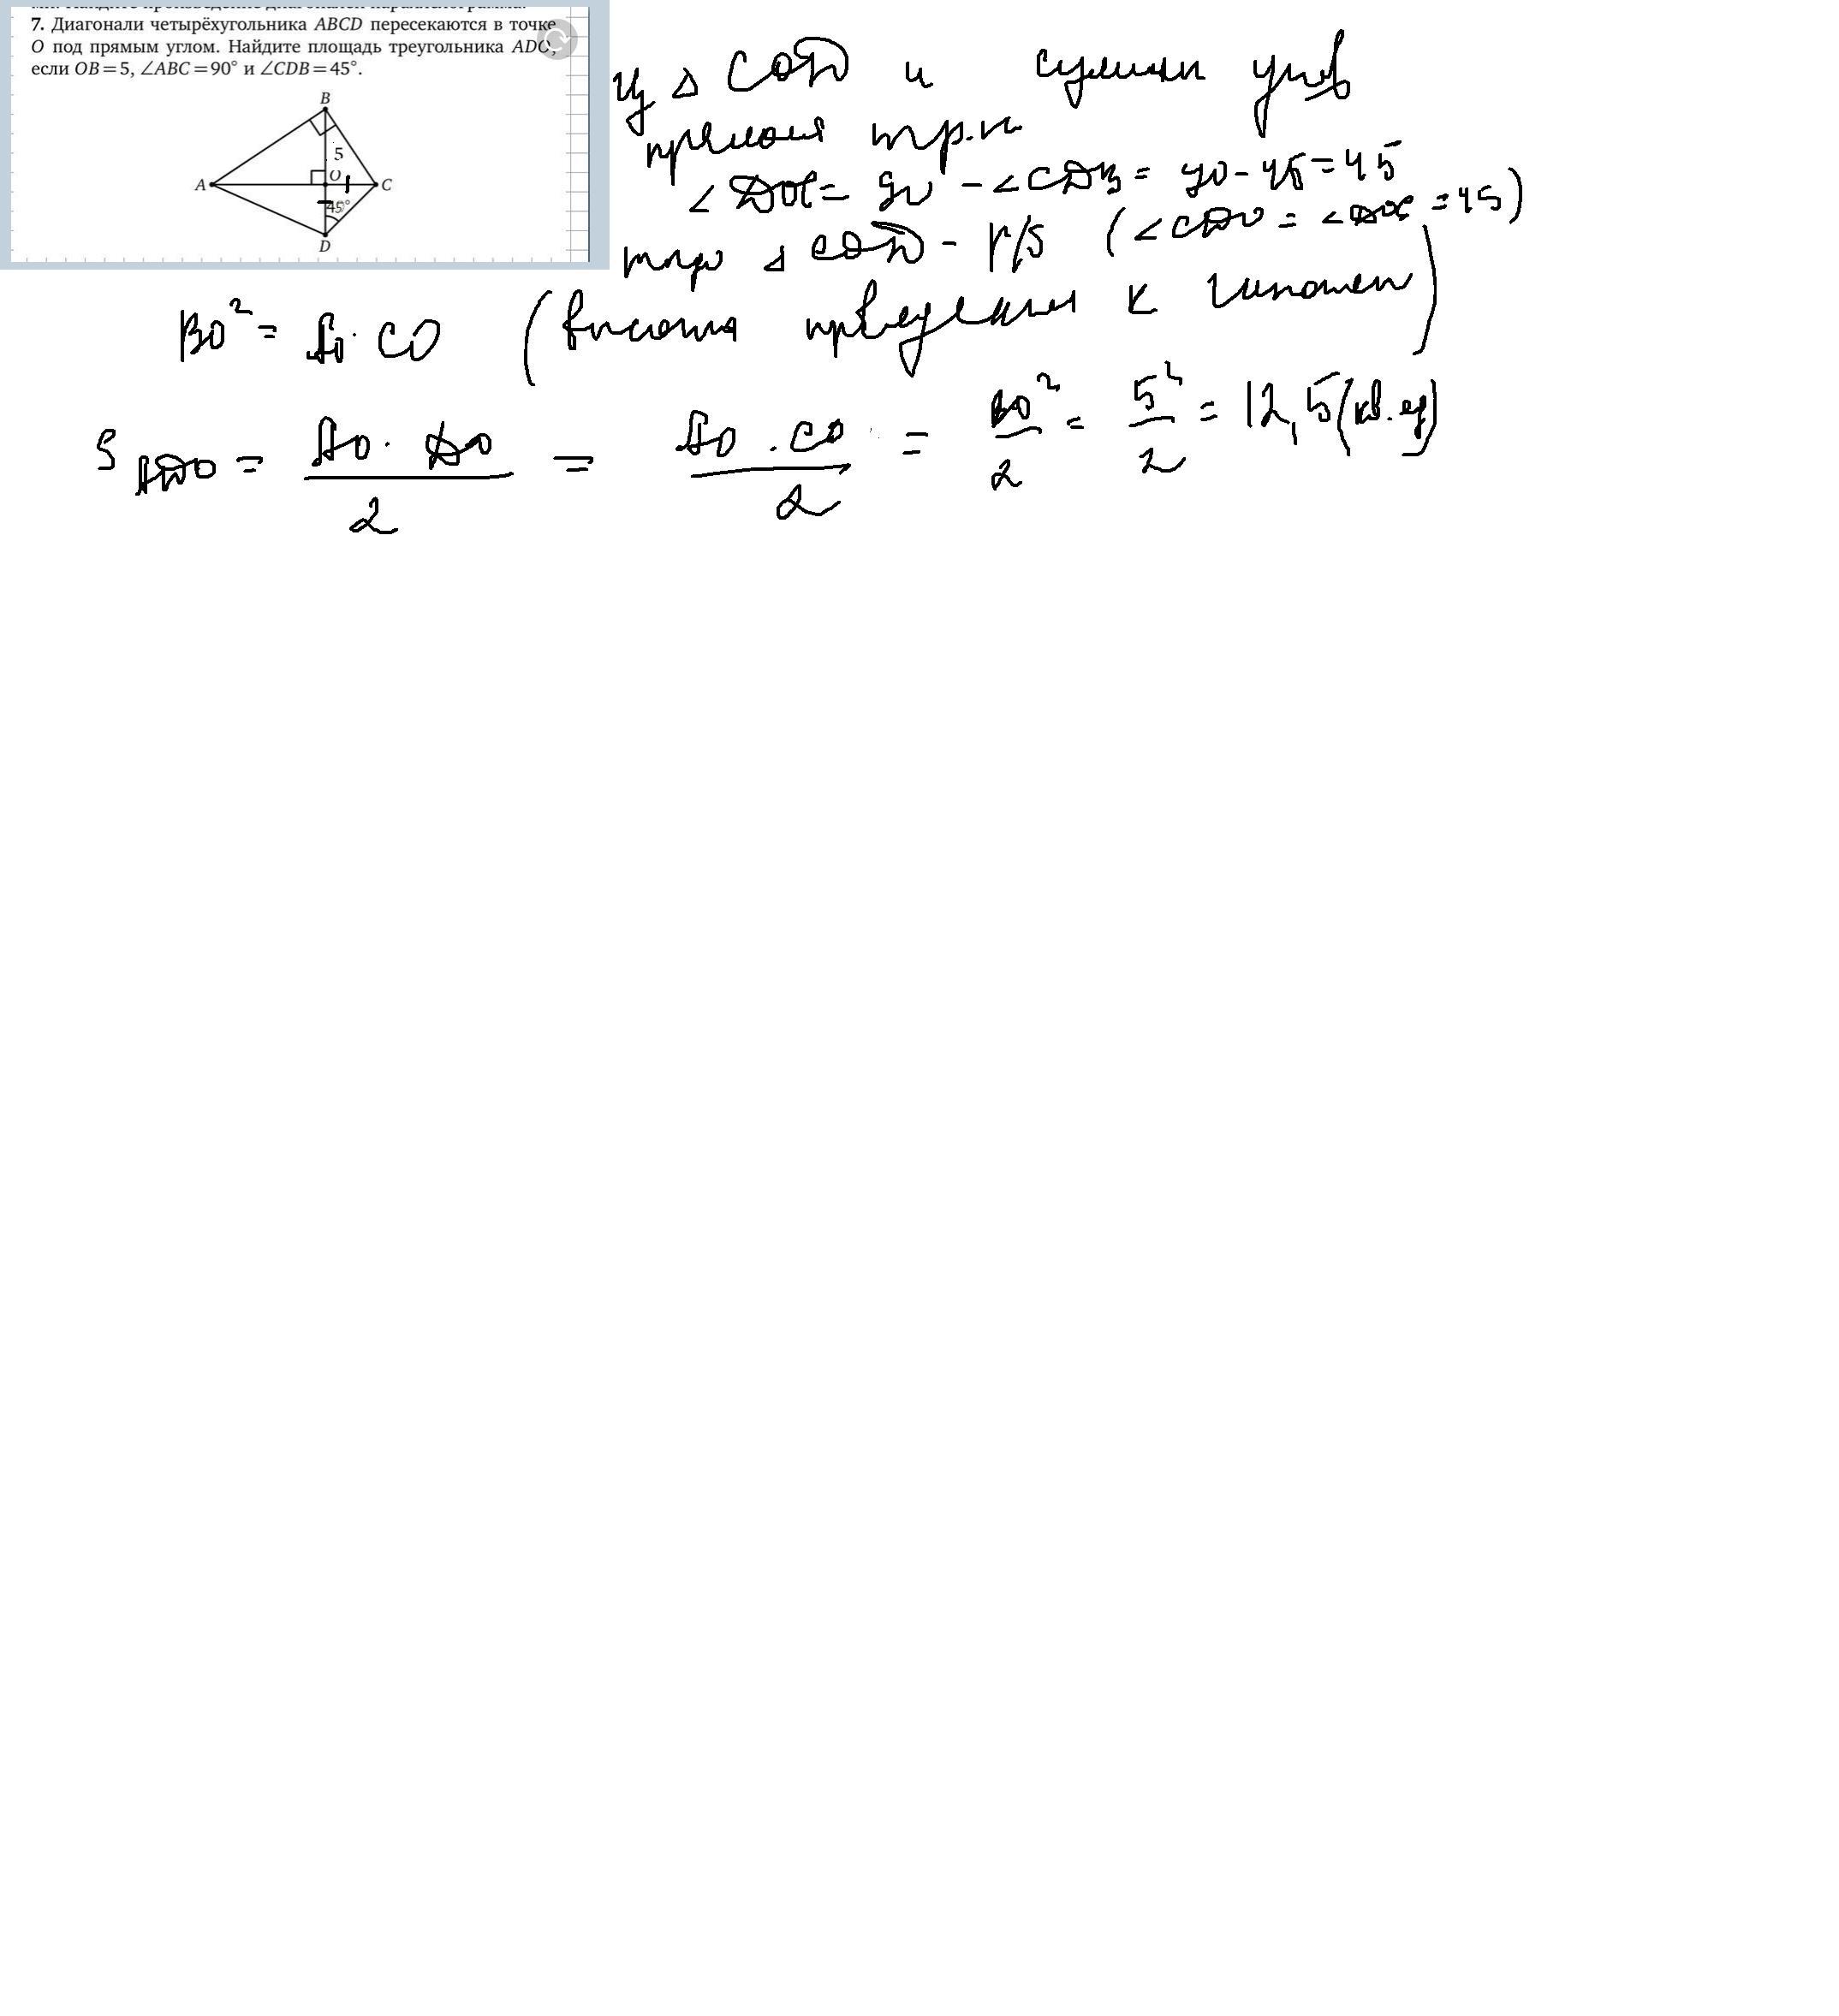 7. Диагонали четырёхугольника ABCD пересекаются в точке
O под прямым углом. Найдите площадь треугольника ADO,
если OB = 5, ∠ABC = 90° и ∠CDB = 45°.
B
5
A O C
45°
D
Из △ COD и суммы углов
прямоуг тр.к
∠DOC = 90 - ∠CDB = 90 - 45 = 45
тогда △ COD - р/б (∠CDO = ∠DOC = 45)
BO² = AO · CO (высота проведенная к гипотен)
S ADO = AO · DO / 2 = AO · CO / 2 = BO² / 2 = 5² / 2 = 12,5 (кв. ед)